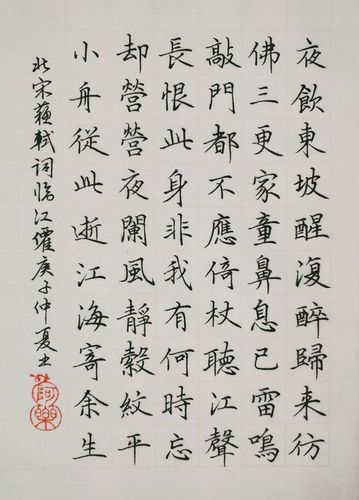 夜飲東坡醒復醉歸来彷
佛三更家童鼻息已雷鳴
敲門都不應倚杖聽江聲
長恨此身非我有何時忘
却營營夜闌風靜縠紋平
小舟從此逝江海寄余生
北宋蘇軾詞臨江僊庚子仲夏书
阿樂